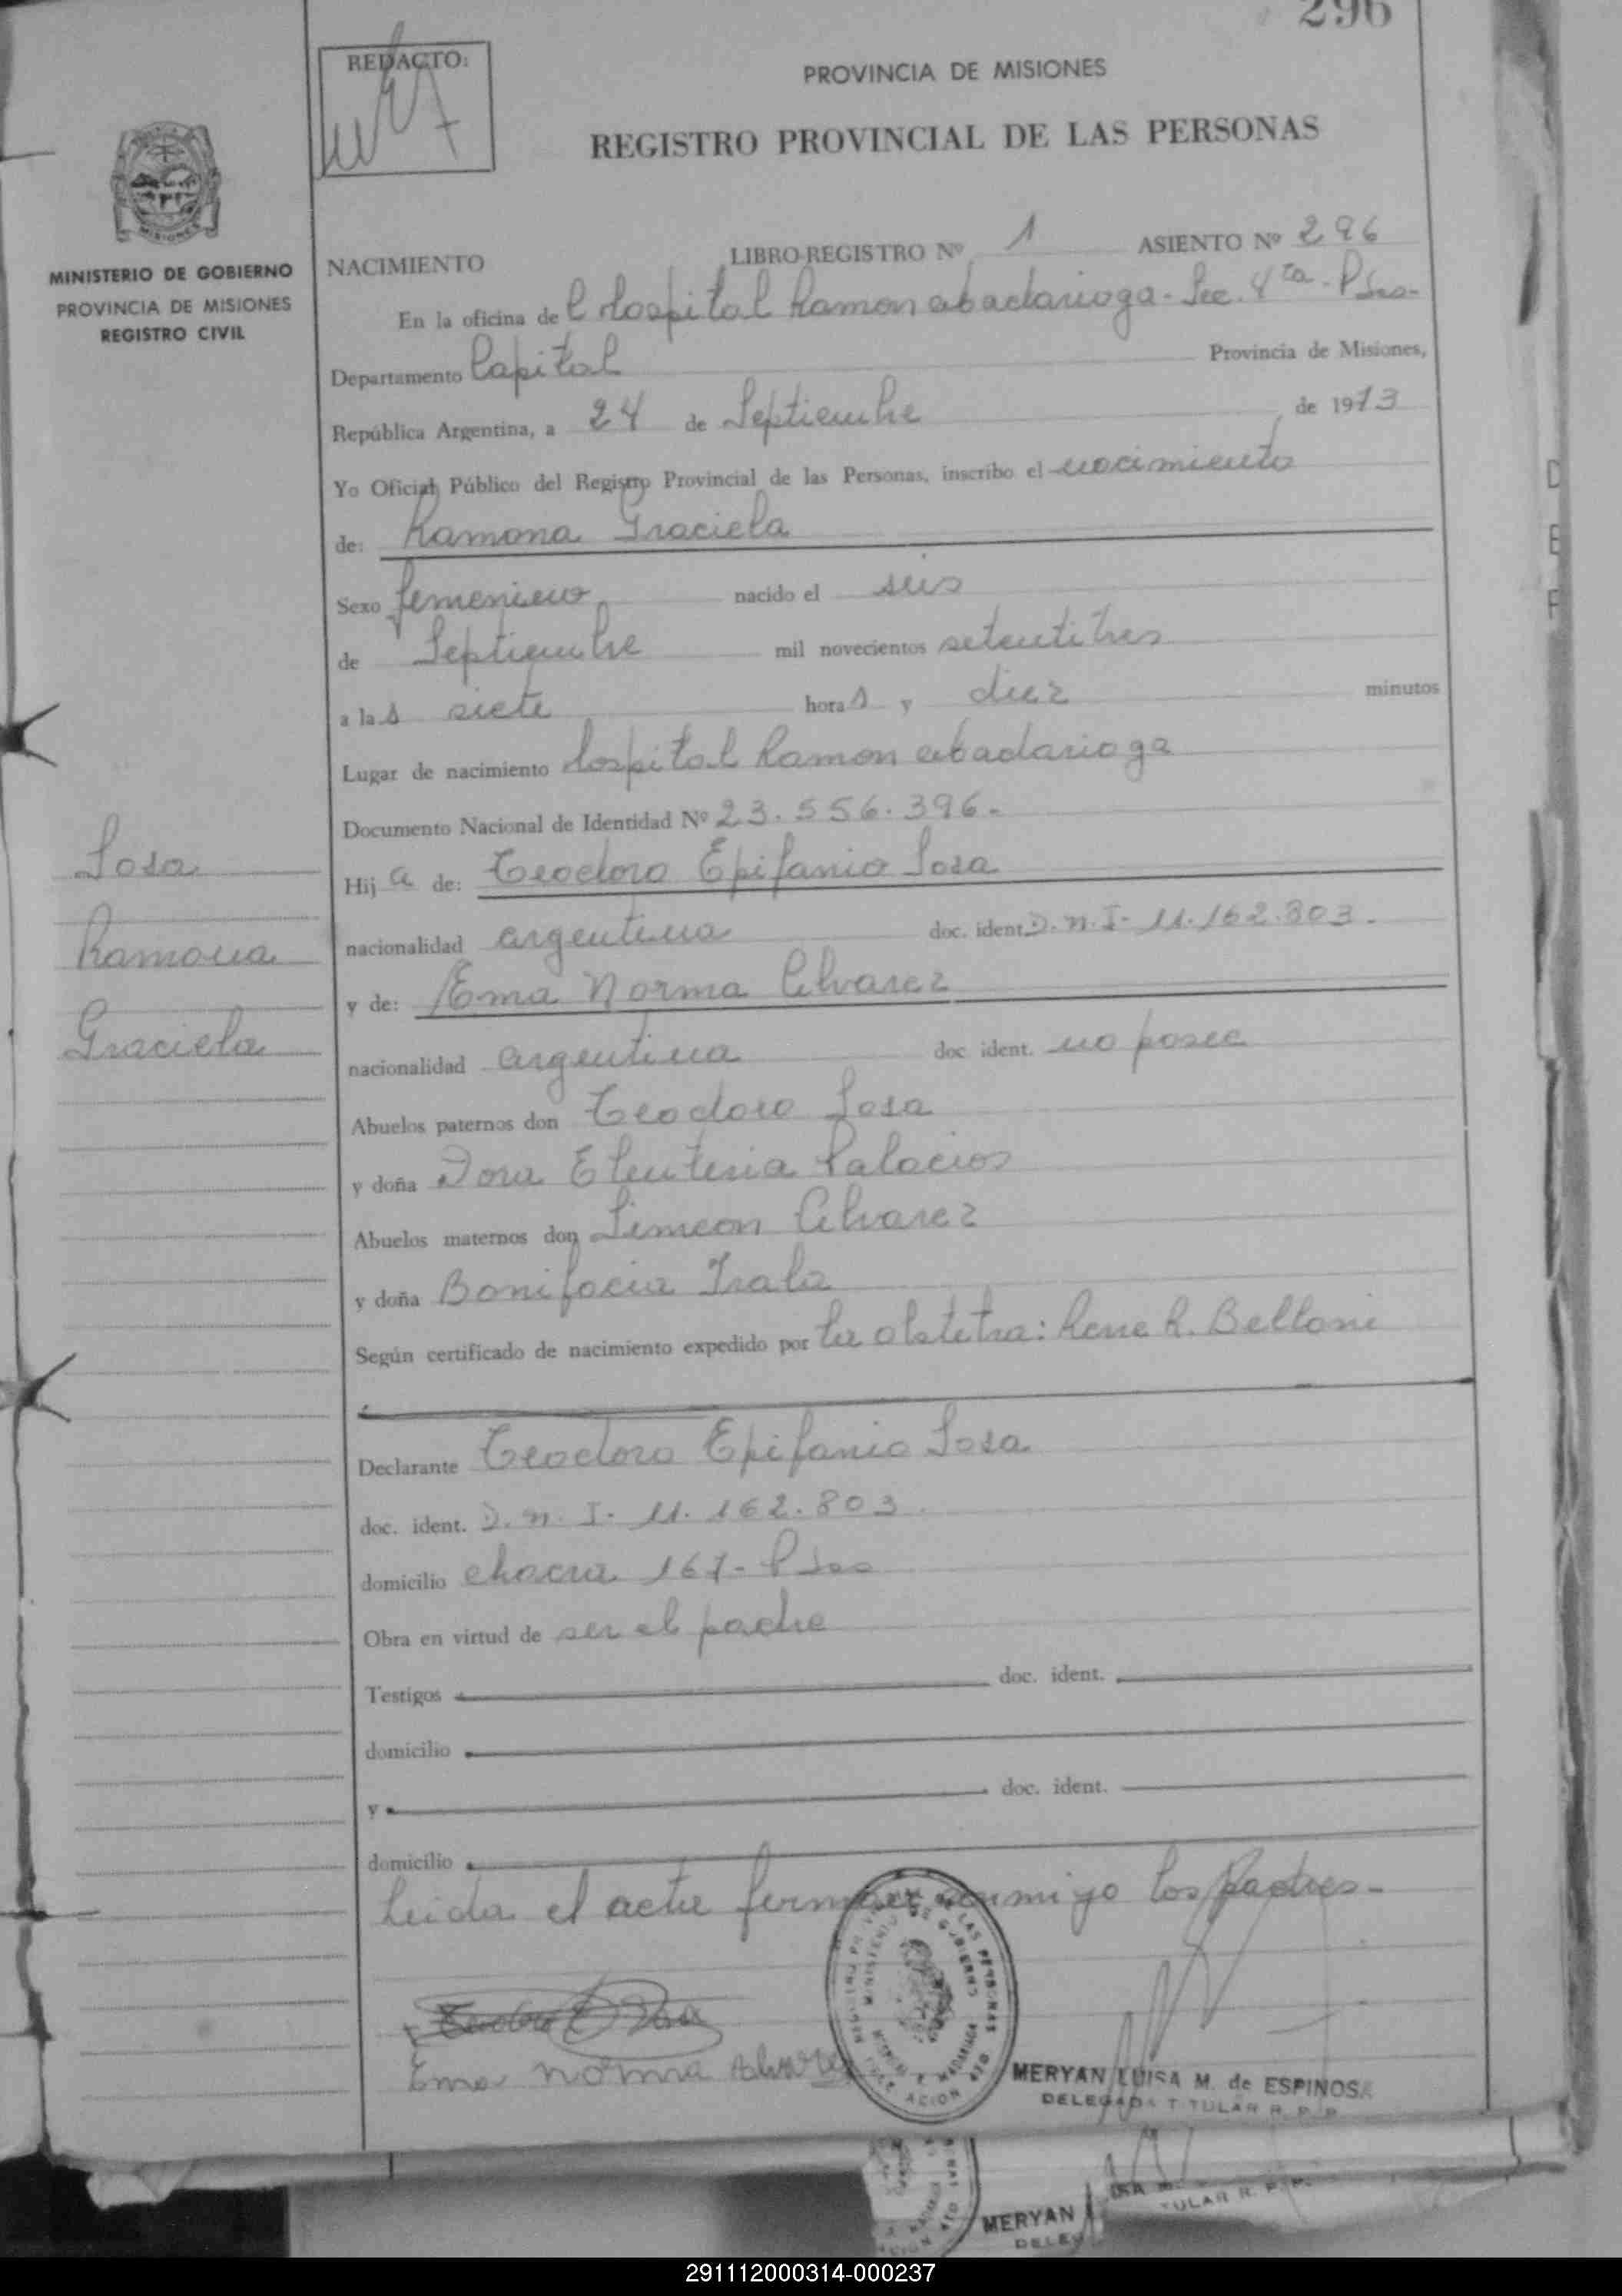 296
REDACTO:
PROVINCIA DE MISIONES
REGISTRO PROVINCIAL DE LAS PERSONAS
MISIONES
MINISTERIO DE GOBIERNO
PROVINCIA DE MISIONES
REGISTRO CIVIL
NACIMIENTO LIBRO-REGISTRO Nº 1 ASIENTO Nº 296
En la oficina del Hospital Ramon abadarioga - Sec. 4ta - Psas-
Departamento Capital Provincia de Misiones,
República Argentina, a 24 de Septiembre de 1973
Yo Oficial Público del Registro Provincial de las Personas, inscribo el nacimiento
de: Ramona Graciela
Sexo femenino nacido el seis
de Septiembre mil novecientos setentitres
a las siete horas y diez minutos
Lugar de nacimiento hospital Ramon abadarioga
Documento Nacional de Identidad Nº 23.556.396.-
Sosa
Ramona
Graciela
Hija de: Teodoro Epifanio Sosa
nacionalidad argentina doc. ident. D.N.I- 11.162.803.-
y de: Ema Norma Alvarez
nacionalidad argentina doc. ident. no posee
Abuelos paternos don Teodoro Sosa
y doña Dora Eleuteria Palacios
Abuelos maternos don Simeon Alvarez
y doña Bonifacia Irala
Según certificado de nacimiento expedido por la obstetra: Rene R. Belloni
Declarante Teodoro Epifanio Sosa
doc. ident. D.N.I- 11.162.803.
domicilio chacra 167- Psas
Obra en virtud de ser el padre
Testigos doc. ident.
domicilio
y doc. ident.
domicilio
Leida el acta firman conmigo los padres-
Ema norma Alvarez
MERYAN LUISA M. de ESPINOSA
DELEGADA TITULAR R. P. P.
MERYAN
TULAR R. P. P.
DELEG
291112000314-000237